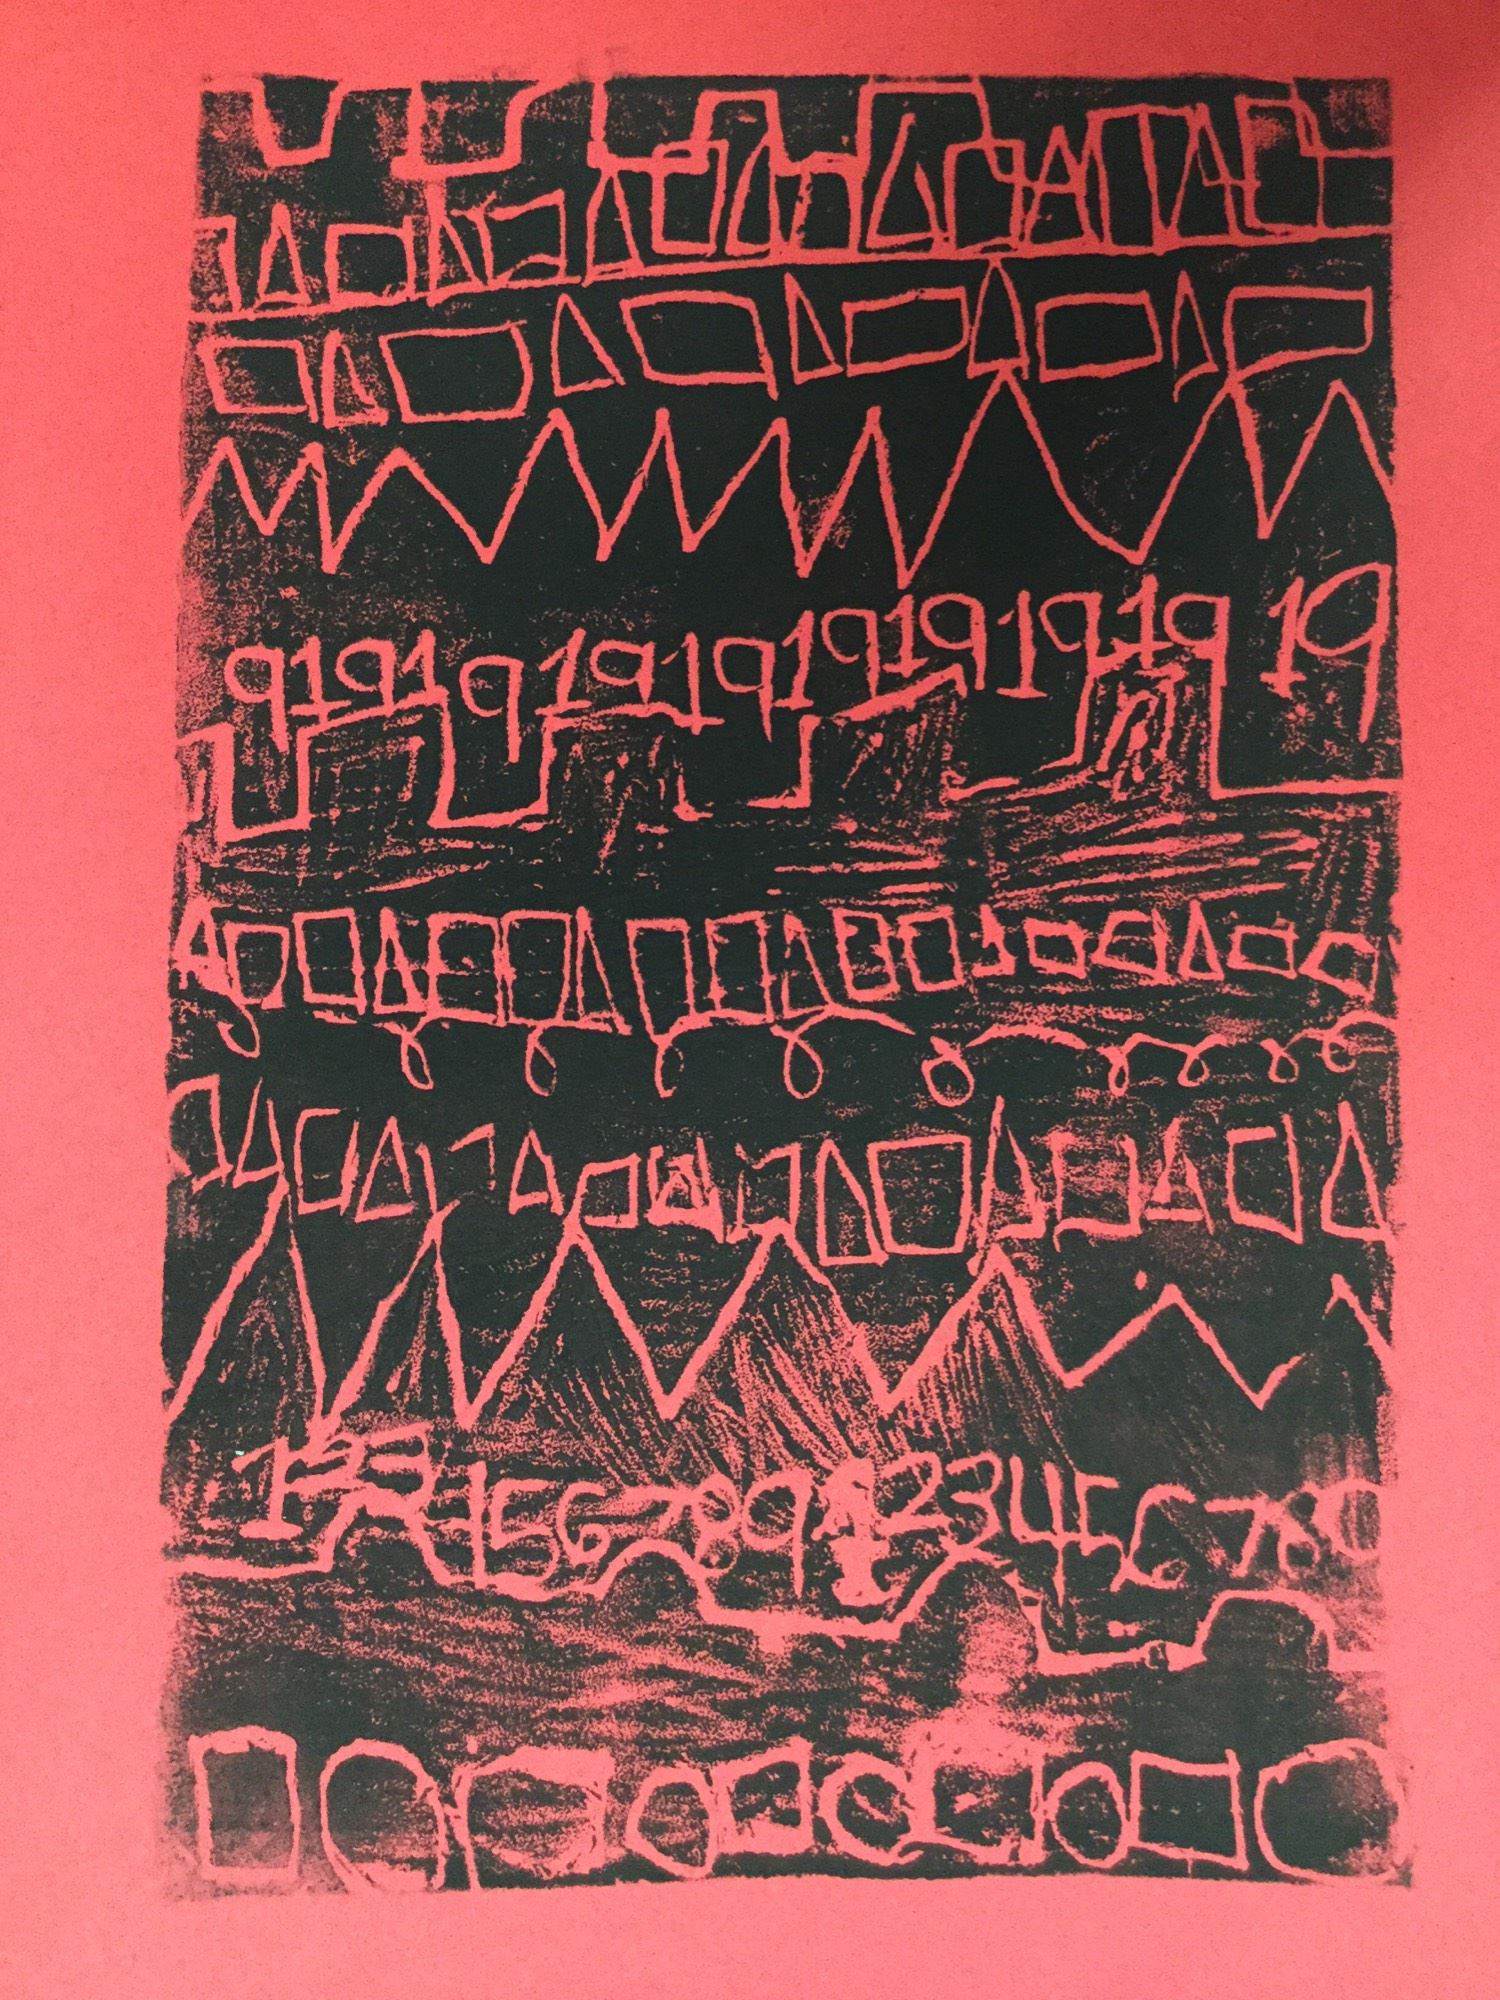 9191919191919191919
12345678912345678